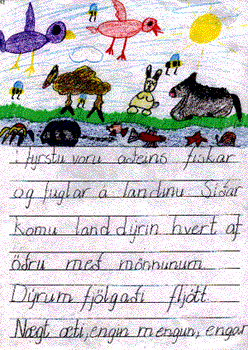 Í fyrstu voru aðeins fiskar
og fuglar á landinu Síðar
komu landdýrin hvert af
öðru með mönnunum.
Dýrum fjölgaði fljótt.
Nægt æti, engin mengun, engar